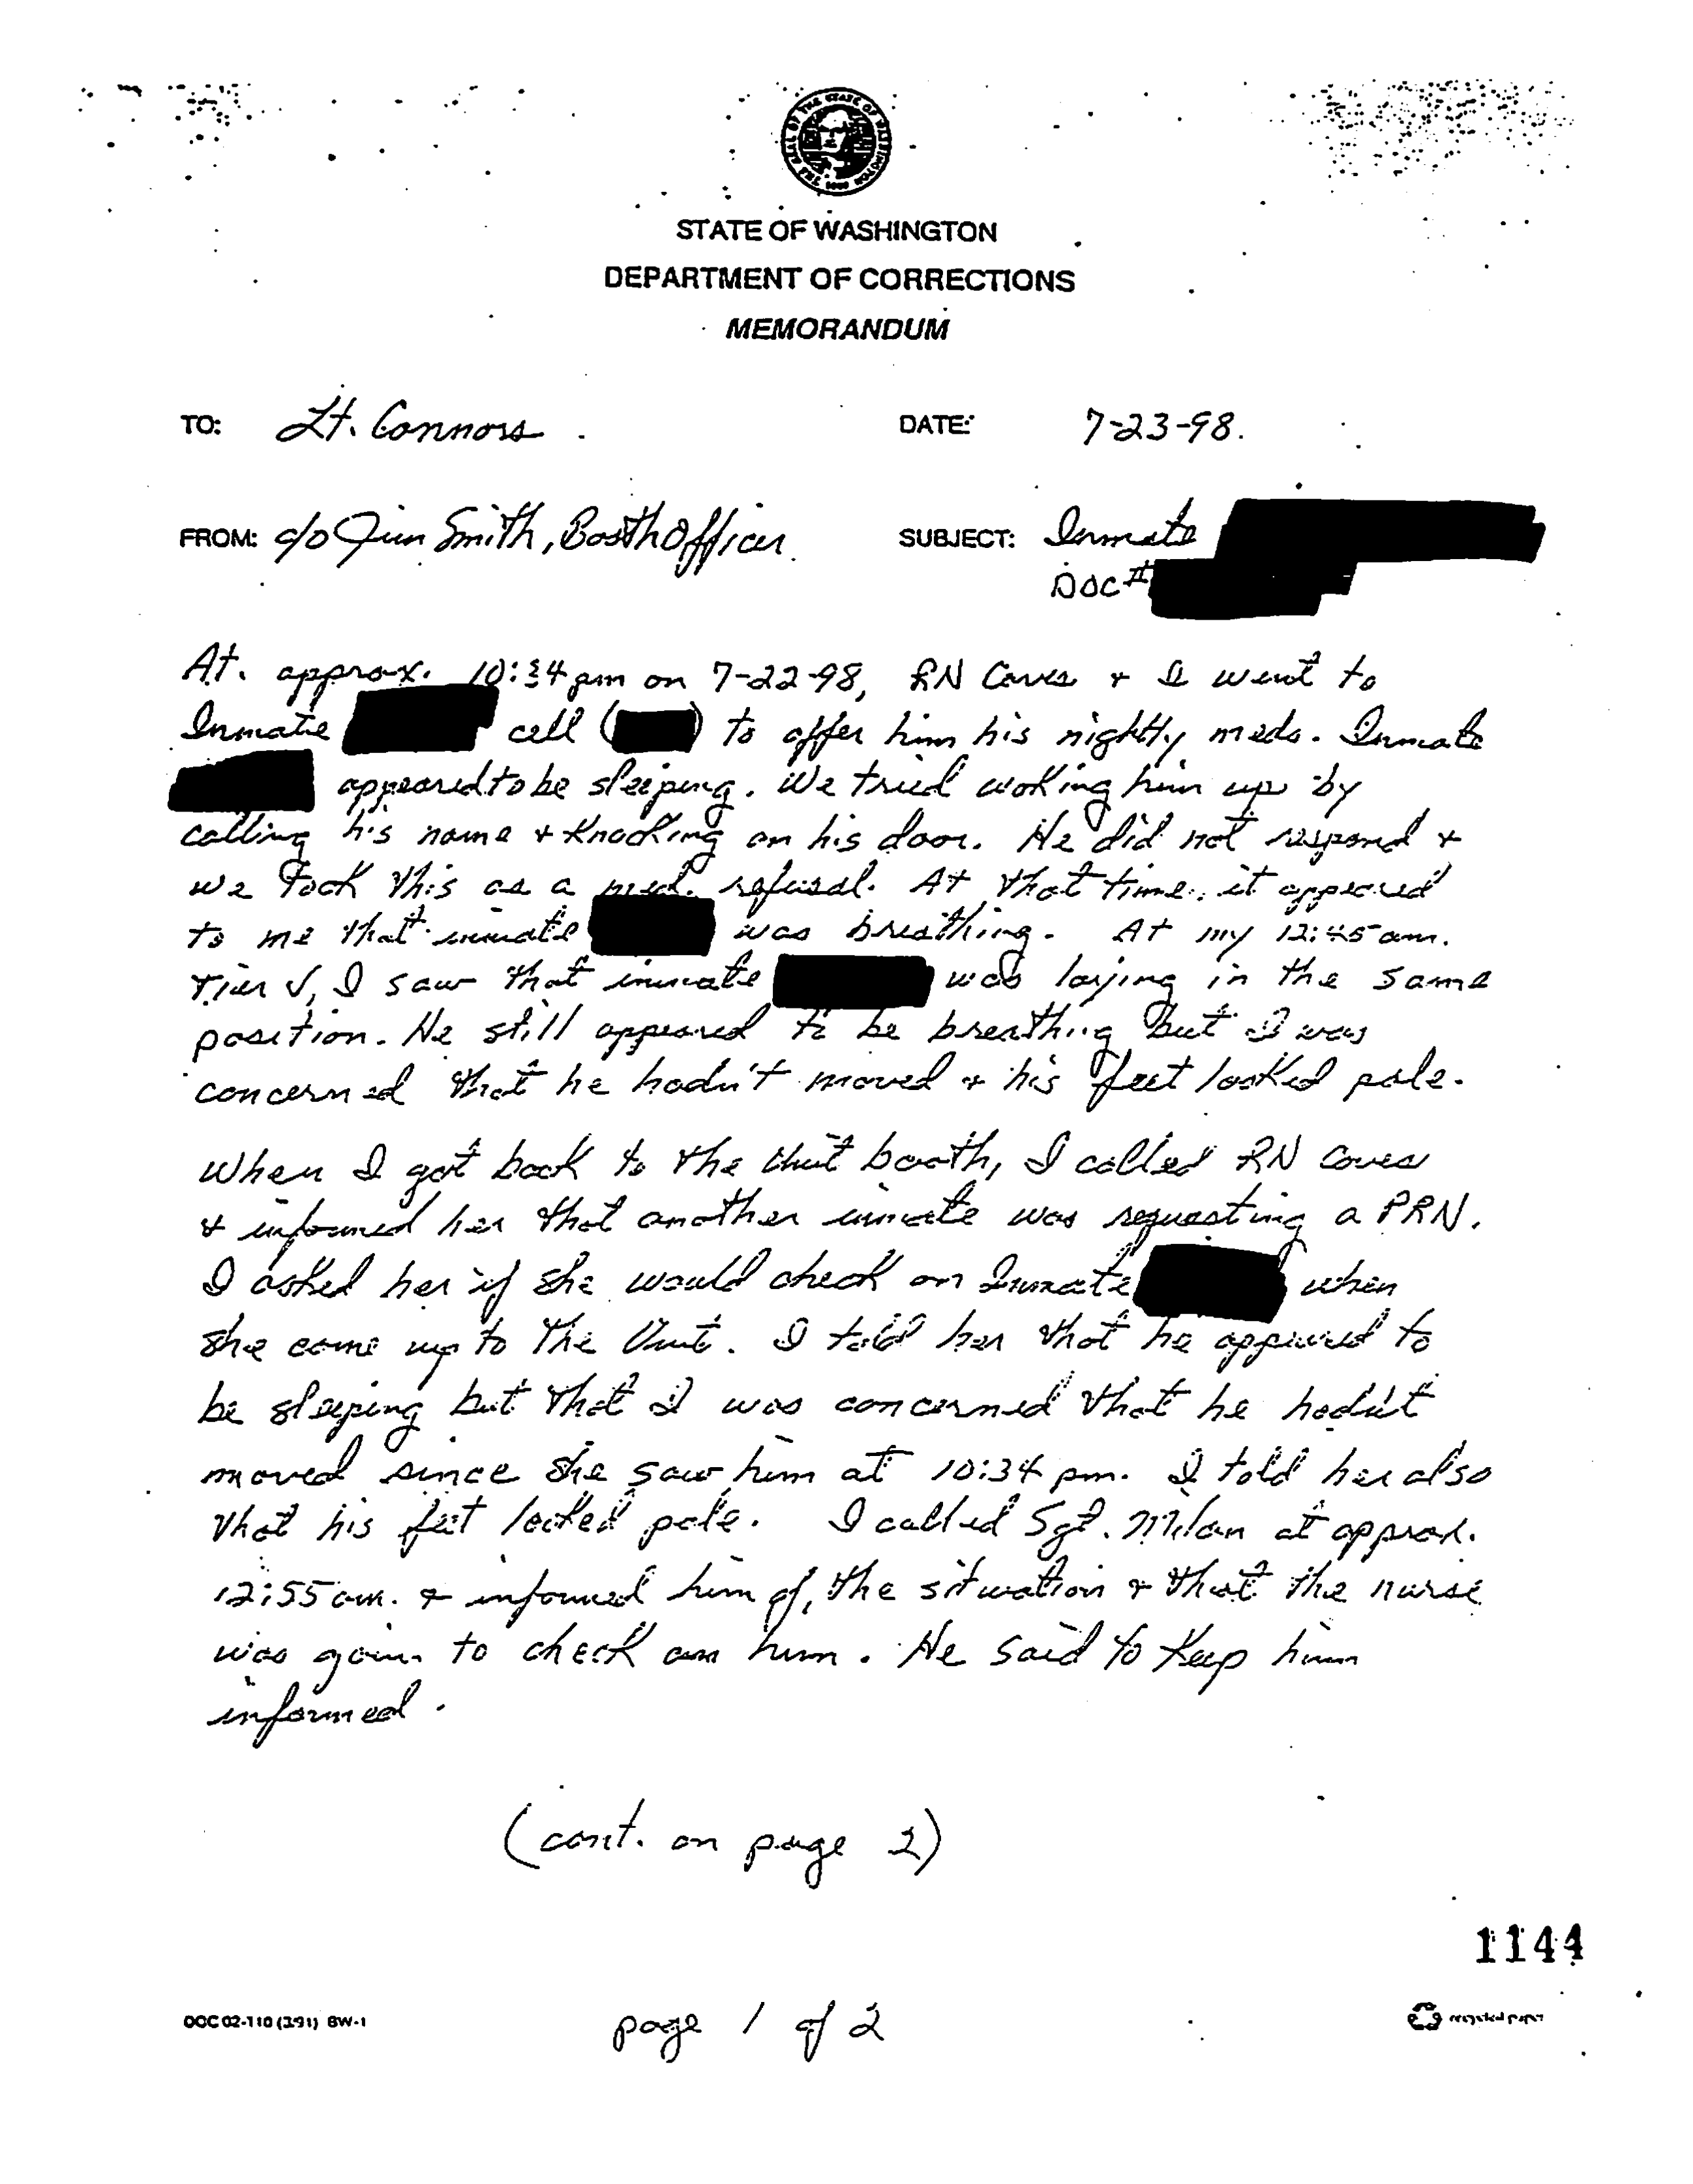 THE SEAL OF THE STATE OF WASHINGTON 1889
STATE OF WASHINGTON
DEPARTMENT OF CORRECTIONS
MEMORANDUM
TO: Lt. Connors DATE: 7-23-98.
FROM: c/o Jim Smith, Booth Officer. SUBJECT: Inmate
DOC#
At. approx. 10:34 pm on 7-22-98, RN Caves + I went to
Inmate cell ( ) to offer him his nightly meds. Inmate
appeared to be sleeping. We tried woking him up by
calling his name + knocking on his door. He did not respond +
we took this as a med. refusal. At that time, it appeared
to me that inmate was breathing. At my 12:45 am.
Tier √, I saw that inmate was laying in the same
position. He still appeared to be breathing but I was
concerned that he hadn't moved + his feet looked pale.
When I got back to the Unit booth, I called RN Caves
+ informed her that another inmate was requesting a PRN.
I asked her if she would check on Inmate when
she came up to the Unit. I told her that he appeared to
be sleeping but that I was concerned that he hadn't
moved since she saw him at 10:34 pm. I told her also
that his feet looked pale. I called Sgt. Milan at approx.
12:55 am. + informed him of, the situation + that the nurse
was goin to check on him. He said to keep him
informed.
(cont. on page 2)
1144
DOC 02-110 (3/91) BW-1 page 1 of 2 recycled paper